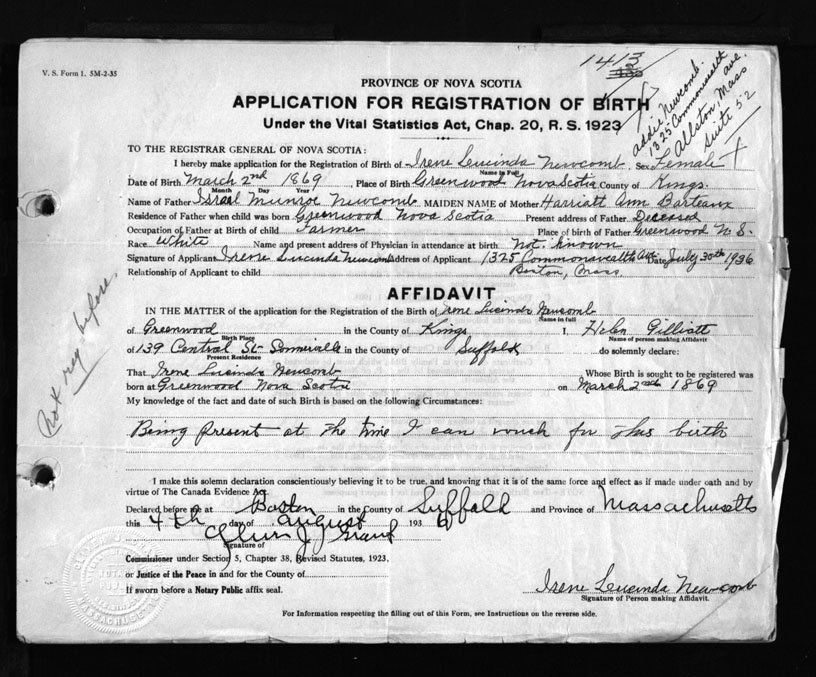 V. S. Form 1. 5M-2-35
1413
Addie Newcomb.
1325 Commonwealth Ave.
Allston, Mass
Suite 52
PROVINCE OF NOVA SCOTIA
APPLICATION FOR REGISTRATION OF BIRTH
Under the Vital Statistics Act, Chap. 20, R. S. 1923
TO THE REGISTRAR GENERAL OF NOVA SCOTIA:
I hereby make application for the Registration of Birth of Irene Lucinda Newcomb Sex Female
Name in Full
Date of Birth March 2nd 1869, Place of Birth Greenwood Nova Scotia County of Kings.
Month Day Year
Name of Father Israel Munroe Newcomb MAIDEN NAME of Mother Harriatt Ann Barteaux
Residence of Father when child was born Greenwood Nova Scotia Present address of Father Deceased
Occupation of Father at Birth of child Farmer Place of birth of Father Greenwood N. S.
Race White Name and present address of Physician in attendance at birth Not known
Signature of Applicant Irene Lucinda Newcomb Address of Applicant 1325 Commonwealth Ave Date July 30th 1936
Relationship of Applicant to child Boston, Mass.
AFFIDAVIT
IN THE MATTER of the application for the Registration of the Birth of Irene Lucinda Newcomb
Name in full
of Greenwood in the County of Kings I, Helen Gilliatt
Birth Place Name of person making Affidavit
of 139 Central St Somerville in the County of Suffolk do solemnly declare:
Present Residence
That Irene Lucinda Newcomb Whose Birth is sought to be registered was
born at Greenwood Nova Scotia on March 2nd 1869
My knowledge of the fact and date of such Birth is based on the following Circumstances:
Being Present at the time I can vouch for this birth
Not reg before.
I make this solemn declaration conscientiously believing it to be true, and knowing that it is of the same force and effect as if made under oath and by
virtue of The Canada Evidence Act.
Declared before me at Boston in the County of Suffolk and Province of Massachusetts
this 4th day of August 1936
Signature of
Commissioner under Section 5, Chapter 38, Revised Statutes, 1923,
or Justice of the Peace in and for the County of
If sworn before a Notary Public affix seal.
Irene Lucinda Newcomb
Signature of Person making Affidavit.
For Information respecting the filling out of this Form, see Instructions on the reverse side.